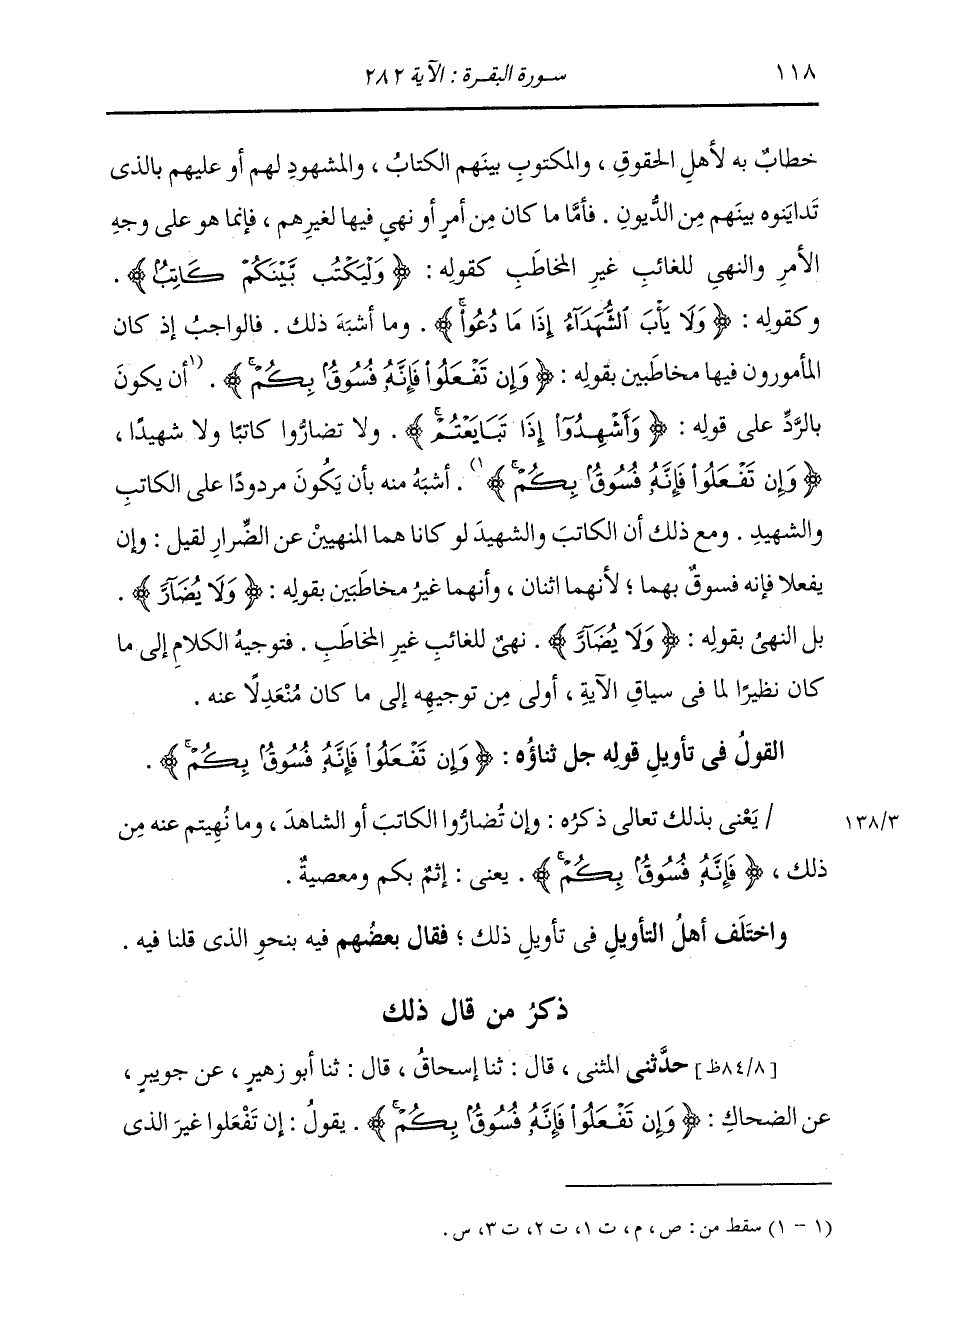 ١١٨ سورة البقرة : الآية ٢٨٢
خطابٌ به لأهلِ الحقوقِ ، والمكتوبِ بينَهم الكتابُ ، والمشهودِ لهم أو عليهم بالذى
تَدايَنوه بينَهم مِن الدُّيونِ . فأمَّا ما كان مِن أمرٍ أو نهيٍ فيها لغيرِهم ، فإنما هو على وجهِ
الأمرِ والنهيِ للغائبِ غيرِ المخاطَبِ كقولِه : ﴿ وَلْيَكْتُب بَّيْنَكُمْ كَاتِبٌ ﴾ .
وكقولِه : ﴿ وَلَا يَأْبَ ٱلشُّهَدَآءُ إِذَا مَا دُعُوا۟ ﴾ . وما أشبَهَ ذلك . فالواجبُ إذ كان
المأمورون فيها مخاطَبين بقولِه : ﴿ وَإِن تَفْعَلُوا۟ فَإِنَّهُۥ فُسُوقٌۢ بِكُمْ ۗ ﴾ . (١أن يكونَ
بالرَّدِّ على قولِه : ﴿ وَأَشْهِدُوٓا۟ إِذَا تَبَايَعْتُمْ ۚ ﴾ . ولا تضارُّوا كاتبًا ولا شهيدًا ،
﴿ وَإِن تَفْعَلُوا۟ فَإِنَّهُۥ فُسُوقٌۢ بِكُمْ ۗ ﴾١) . أشبَهُ منه بأن يَكُونَ مردودًا على الكاتبِ
والشهيدِ . ومع ذلك أن الكاتبَ والشهيدَ لو كانا هما المنهيينْ عن الضِّرارِ لقيل : وإن
يفعلا فإنه فسوقٌ بهما ؛ لأنهما اثنان ، وأنهما غيرُ مخاطَبَين بقولِه : ﴿ وَلَا يُضَآرَّ ﴾ .
بل النهىُ بقولِه : ﴿ وَلَا يُضَآرَّ ﴾ . نهىٌ للغائبِ غيرِ المخاطَبِ . فتوجيهُ الكلامِ إلى ما
كان نظيرًا لما فى سياقِ الآيةِ ، أولى مِن توجيهِه إلى ما كان مُنْعَدِلًا عنه .
القولُ فى تأويلِ قولِه جل ثناؤُه : ﴿ وَإِن تَفْعَلُوا۟ فَإِنَّهُۥ فُسُوقٌۢ بِكُمْ ۗ ﴾ .
١٣٨/٣ / يَعْنى بذلك تعالى ذكرُه : وإن تُضارُّوا الكاتبَ أو الشاهدَ ، وما نُهِيتم عنه مِن
ذلك ، ﴿ فَإِنَّهُۥ فُسُوقٌۢ بِكُمْ ۗ ﴾ . يعنى : إثمٌ بكم ومعصيةٌ .
واختَلَف أهلُ التأويلِ فى تأويلِ ذلك ؛ فقال بعضُهم فيه بنحوِ الذى قلنا فيه .
ذكرُ من قال ذلك
[٨٤/٨ظ] حدَّثنى المثنى ، قال : ثنا إسحاقُ ، قال : ثنا أبو زهيرٍ ، عن جويبرٍ ،
عن الضحاكِ : ﴿ وَإِن تَفْعَلُوا۟ فَإِنَّهُۥ فُسُوقٌۢ بِكُمْ ۗ ﴾ . يقولُ : إن تَفْعَلوا غيرَ الذى
(١ - ١) سقط من : ص ، م ، ت ١، ت ٢، ت ٣، س .